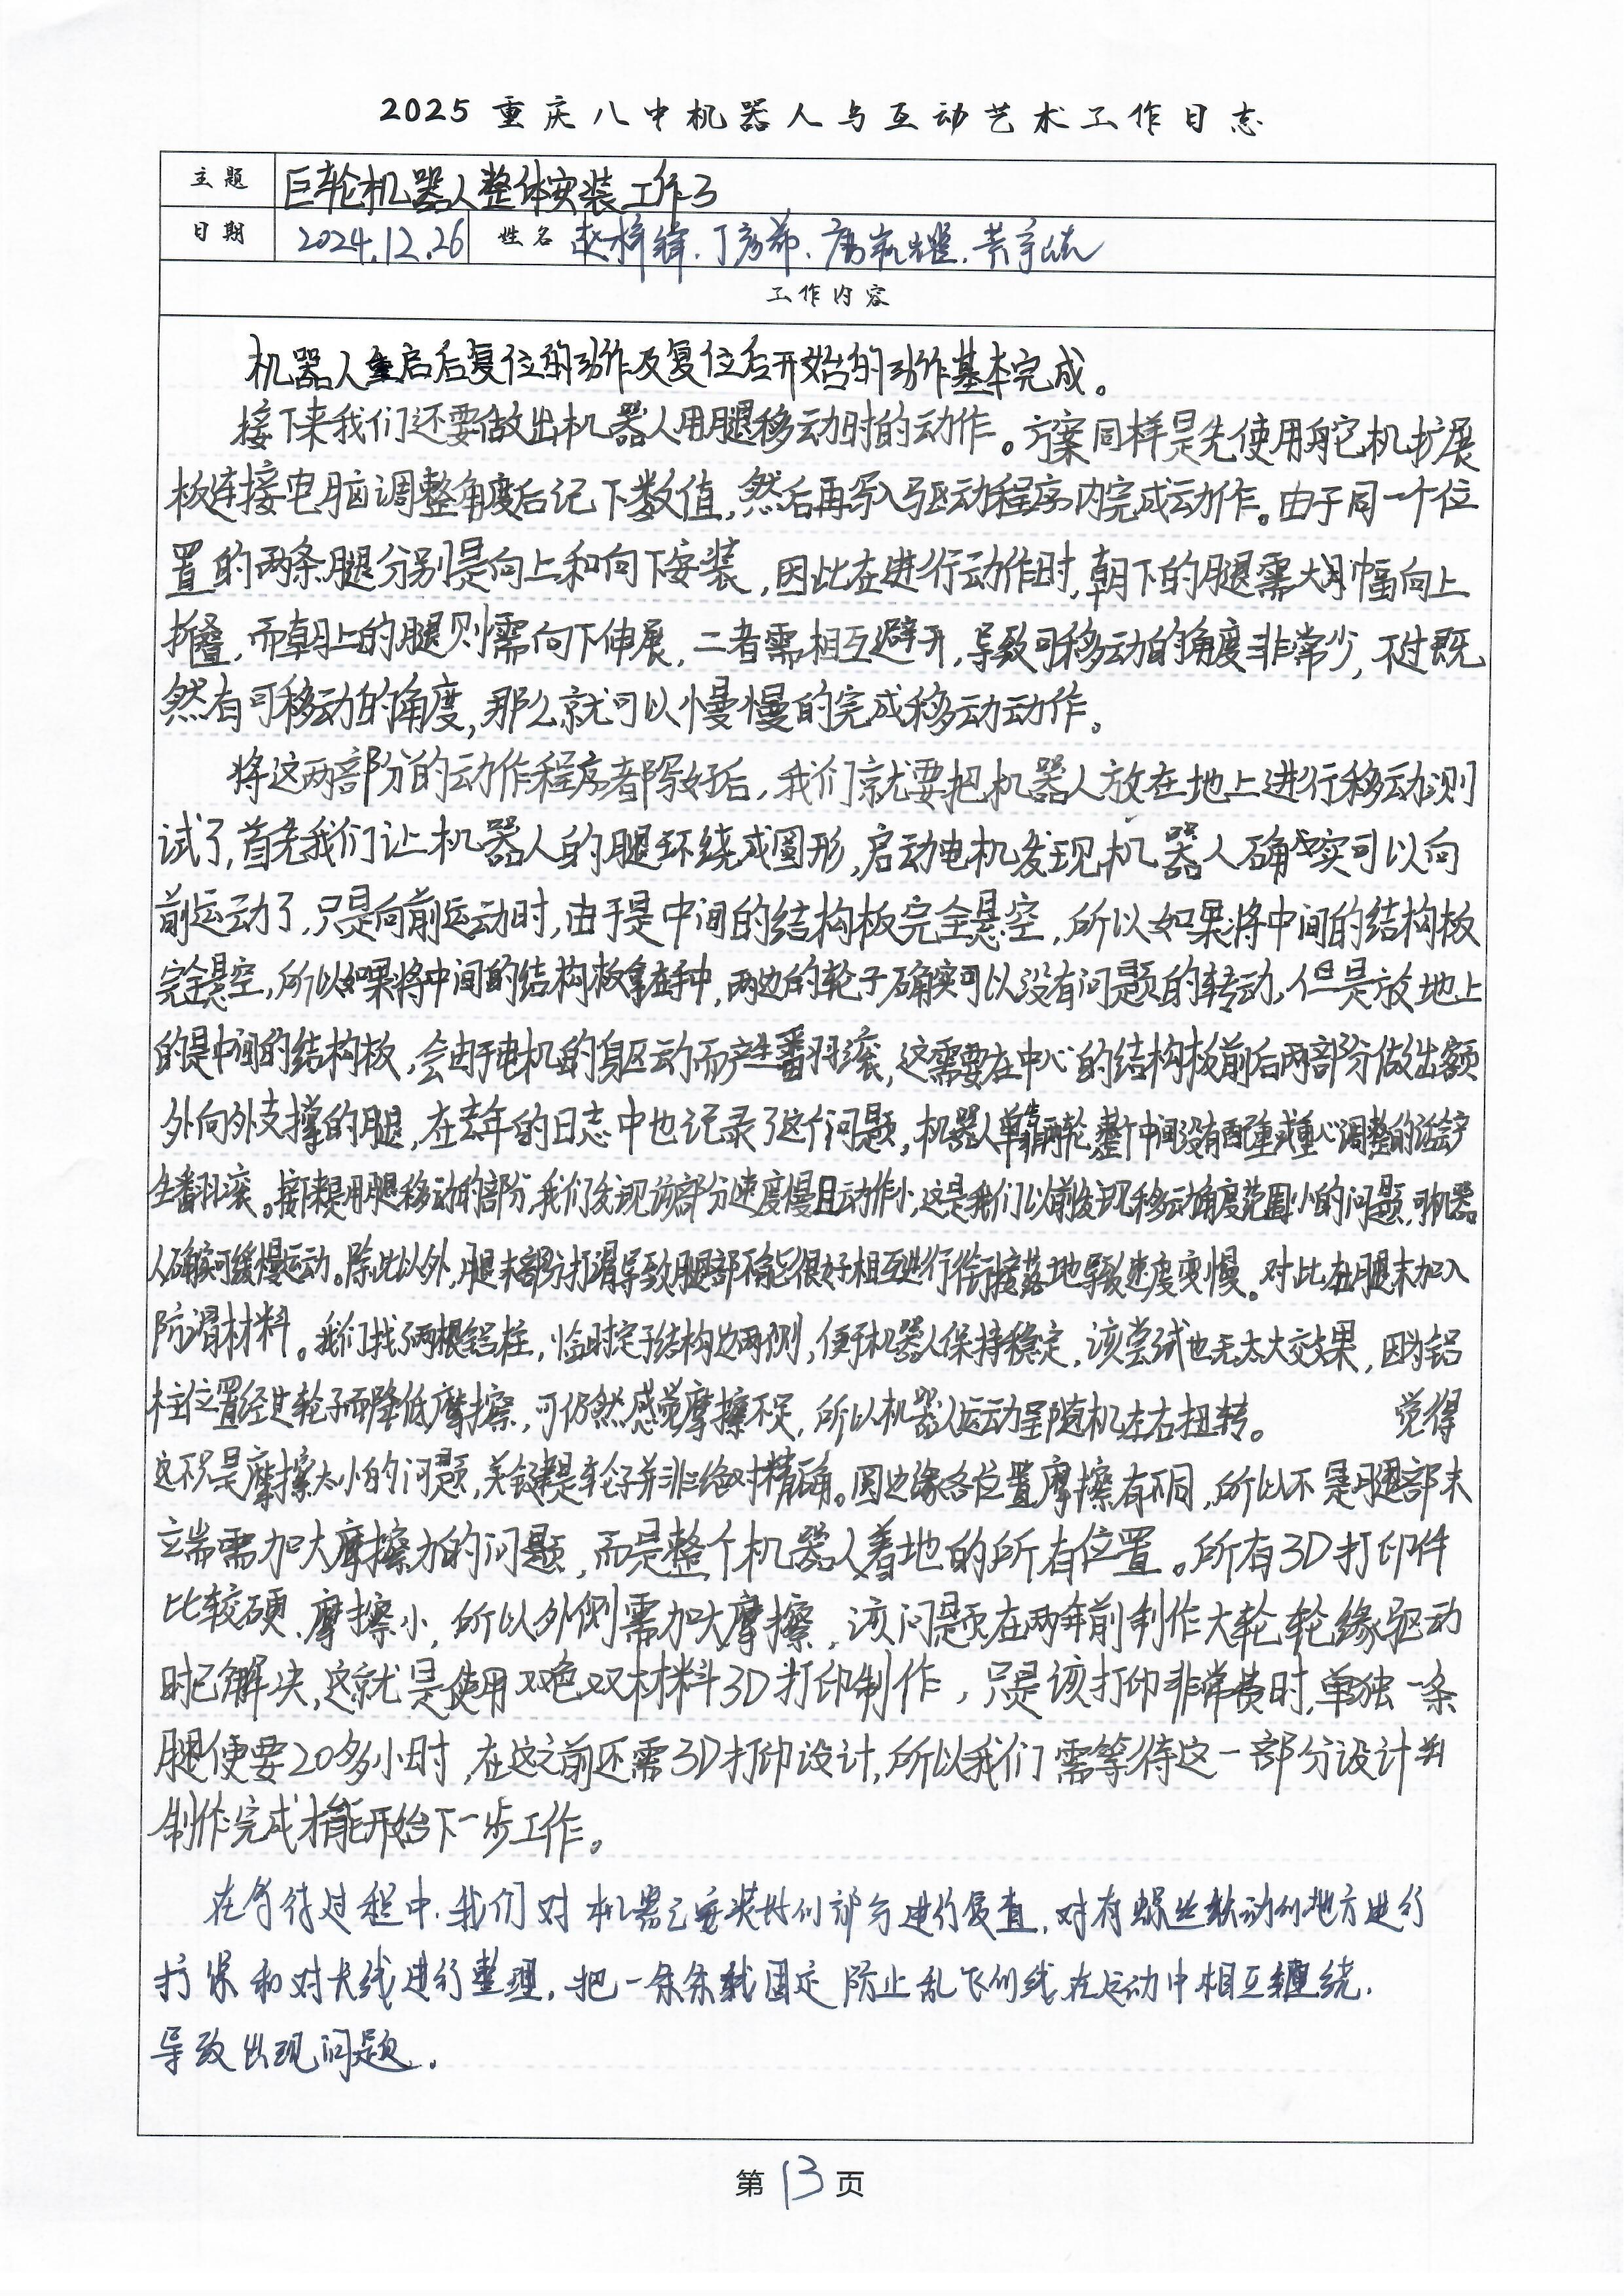 2025重庆八中机器人与互动艺术工作日志
主题 巨轮机器人整体安装工作3
日期 2024.12.26 姓名 赵梓锋.丁彦茹.
工作内容
机器人重启后复位的动作及复位后开始的动作基本完成。
接下来我们还要做出机器人用腿移动时的动作。方案同样是先使用舵机扩展
板连接电脑调整角度后记下数值,然后再写入驱动程序内完成动作。由于同一个位
置的两条腿分别是向上和向下安装,因此在进行动作时,朝下的腿需大幅向上
折叠,而朝上的腿则需向下伸展,二者需相互避开,导致可移动的角度非常少,不过既
然有可移动的角度,那么就可以慢慢的完成移动动作。
将这两部分的动作程序都写好后,我们就要把机器人放在地上进行移动测
试了,首先我们让机器人的腿环绕成圆形,启动电机发现机器人确实可以向
前运动了,只是向前运动时,由于是中间的结构板完全悬空,所以如果将中间的结构板
完全悬空,所以如果将中间的结构板拿在手中,两边的轮子确实可以没有问题的转动,但是放地上
的是中间的结构板,会由于电机的驱动而产生翻滚,这需要在中心的结构板前后两部分做出额
外向外支撑的腿,在去年的日志中也记录了这个问题,机器人单靠两轮,整个中间没有配重或重心调整的话会产
生翻滚。接下来是用腿移动的部分,我们发现该部分速度慢且动作小,这是我们以前发现移动角度范围小的问题,可机器
人确实可缓慢运动。除此以外,腿末部分打滑导致腿部不能很好相互进行衔接落地导致速度变慢。对比在腿末加入
防滑材料。我们找了两根铝柱,临时定于结构边两侧,便于机器人保持稳定,该尝试也无太大效果,因为铝
柱位置经过轮子而降低摩擦,可仍然感觉摩擦不足,所以机器人运动呈随机左右扭转。 觉得
这不只是摩擦太小的问题,关键是轮子并非绝对精确。因边缘各位置摩擦有不同,所以不是腿部末
立端需加大摩擦力的问题,而是整个机器人着地的所有位置。所有3D打印件
比较硬、摩擦小,所以外侧需加大摩擦,该问题在两年前制作大轮轮缘驱动
时已解决,这就是使用双色双材料3D打印制作,只是该打印非常费时,单独一条
腿便要20多小时,在这之前还需3D打印设计,所以我们需等待这一部分设计并
制作完成才能开始下一步工作。
在等待过程中.我们对机器已安装好的部分进行复查,对有螺丝松动的地方进行
打保和对长线进行整理,把一条条线固定防止乱飞的线在运动中相互缠绕,
导致出现问题.
第13页